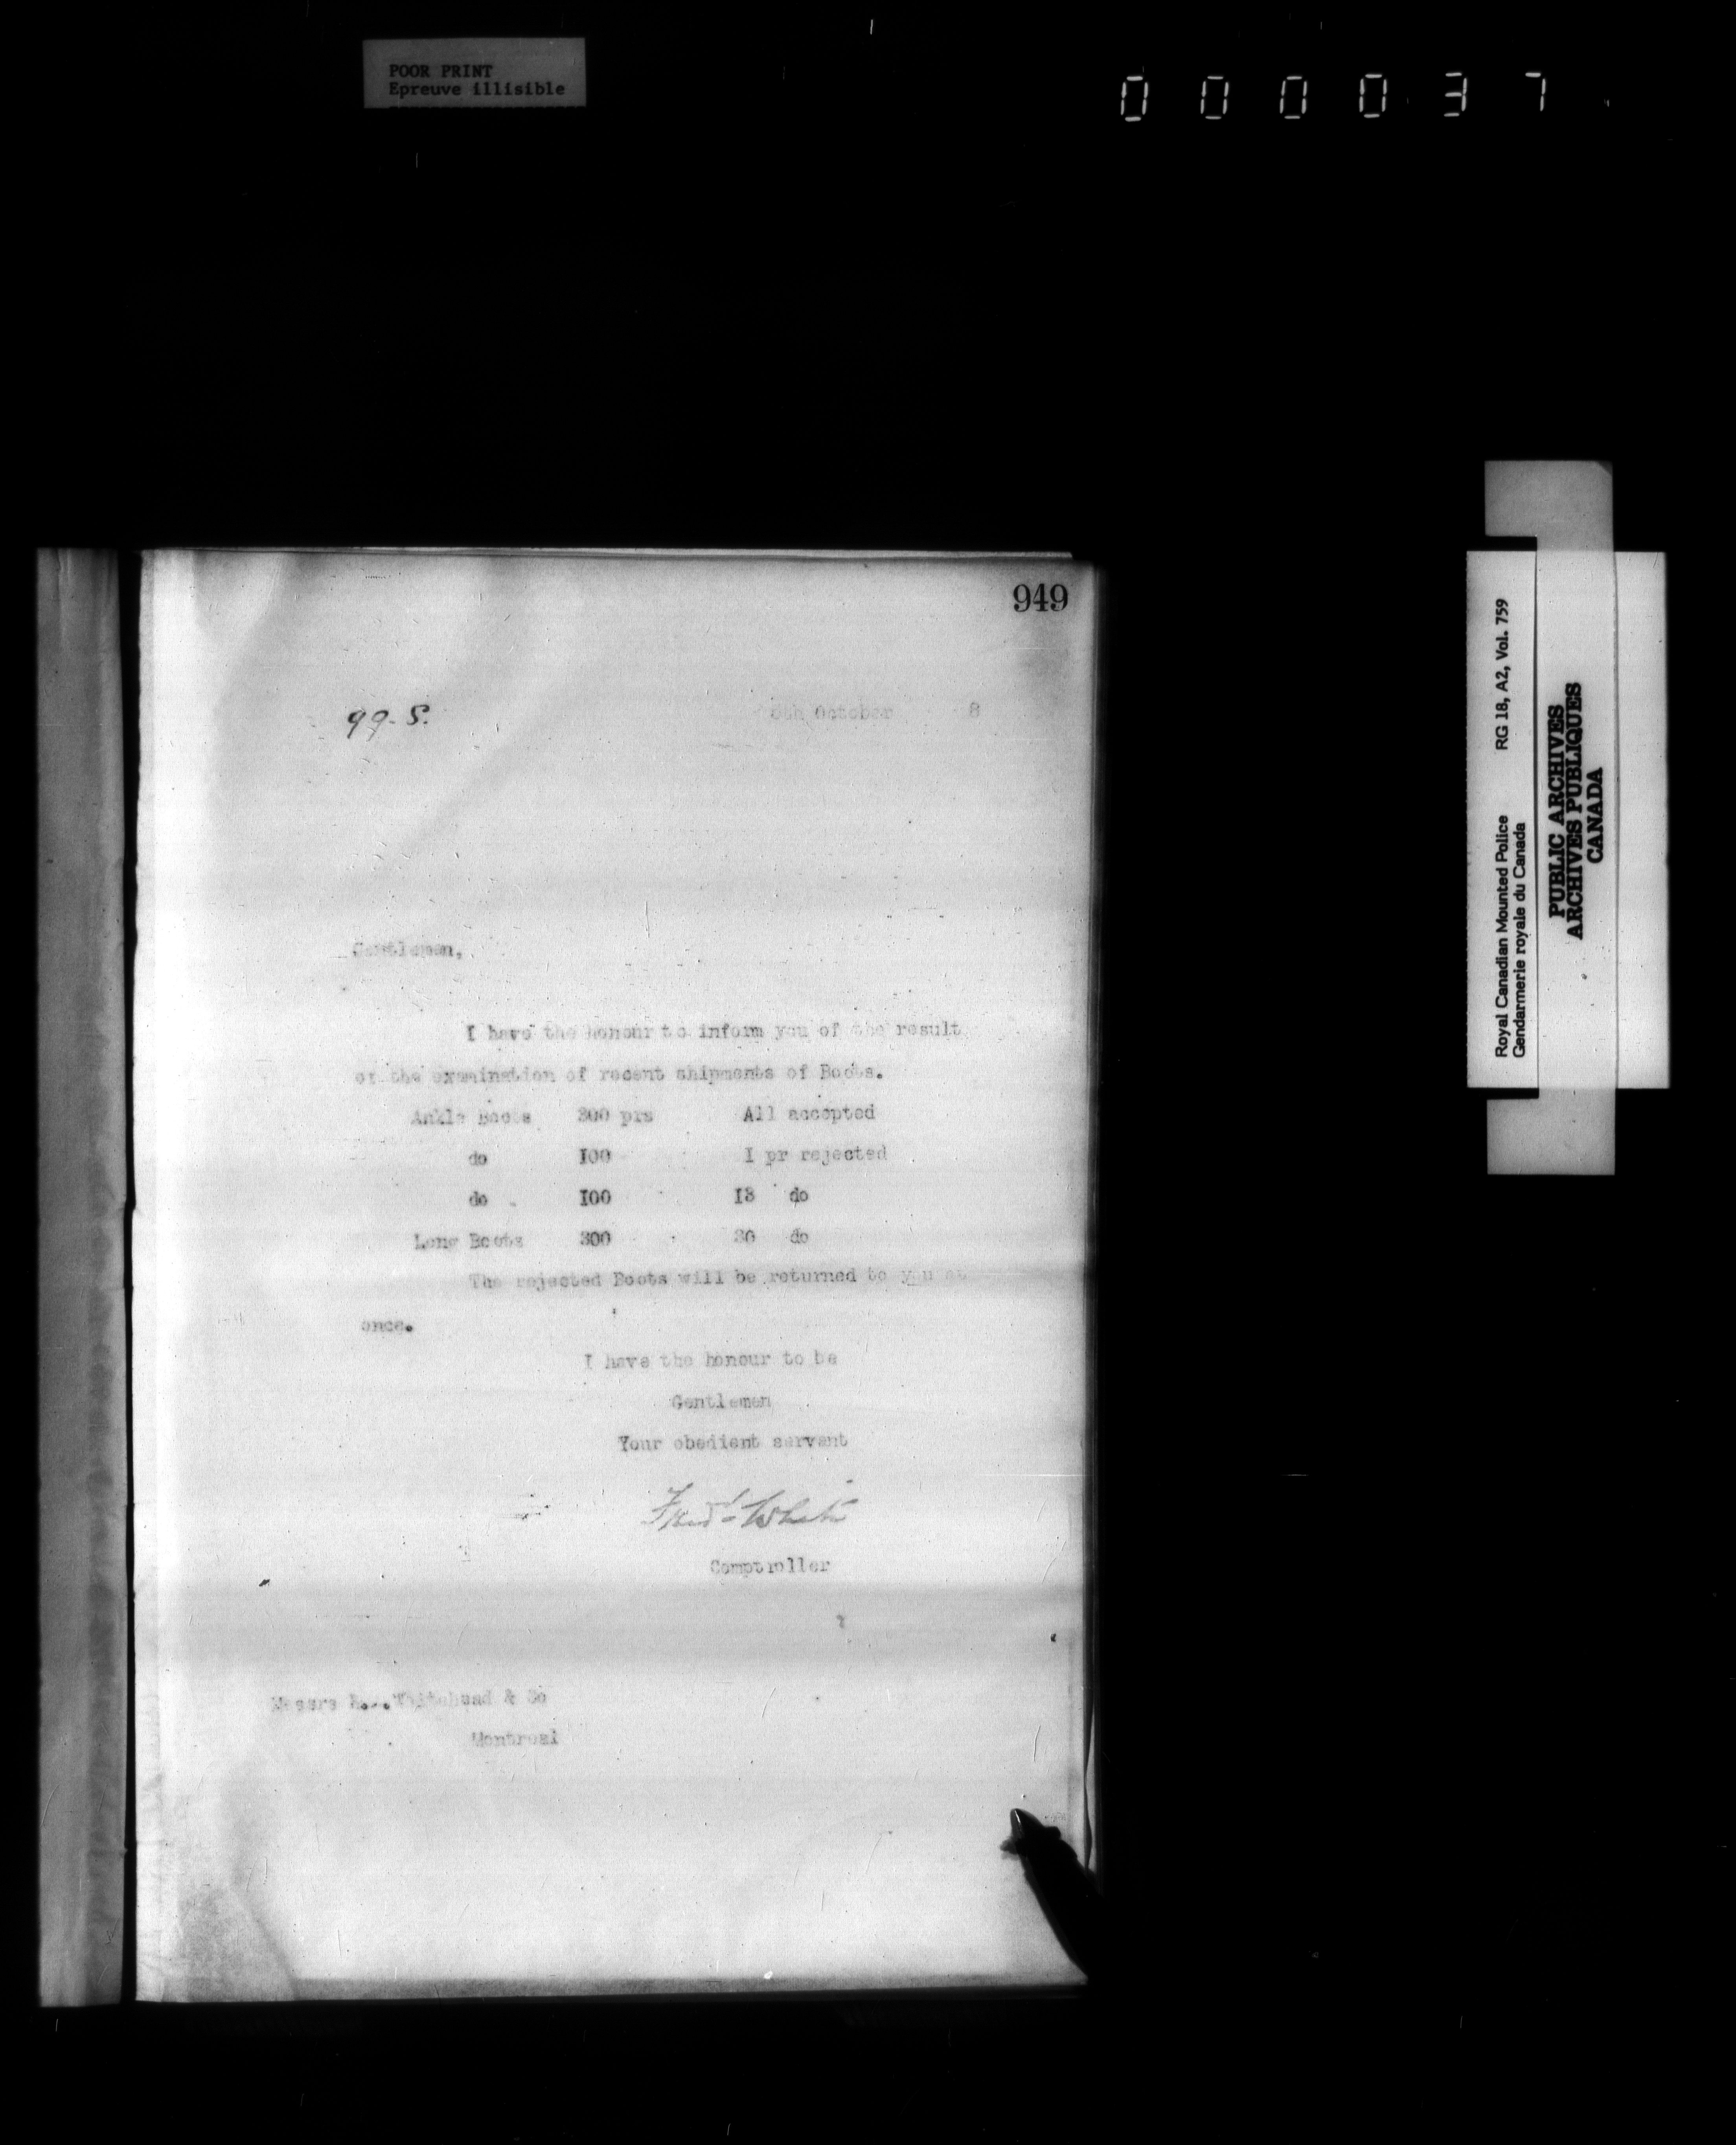 POOR PRINT
Epreuve illisible
000037
949
99-S.
October 8
Gentlemen,
I have the honour to inform you of the result
of the examination of recent shipments of Boots.
Ankle Boots 300 prs All accepted
do I00 I pr rejected
do I00 I3 do
Long Boots 300 30 do
The rejected Boots will be returned to you at
once.
I have the honour to be
Gentlemen
Your obedient servant
Fred White
Comptroller
Messrs Whitehead & Co
Montreal
Royal Canadian Mounted Police RG 18, A2, Vol. 759
Gendarmerie royale du Canada
PUBLIC ARCHIVES
ARCHIVES PUBLIQUES
CANADA